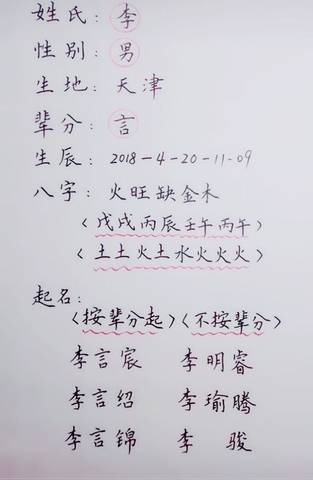 姓氏：李
性别：男
生地：天津
辈分：言
生辰：2018-4-20-11-09
八字：火旺缺金木
〈戊戌丙辰壬午丙午〉
〈土土火土水火火火〉
起名：
〈按辈分起〉〈不按辈分〉
李言宸 李明睿
李言绍 李瑜腾
李言锦 李 骏